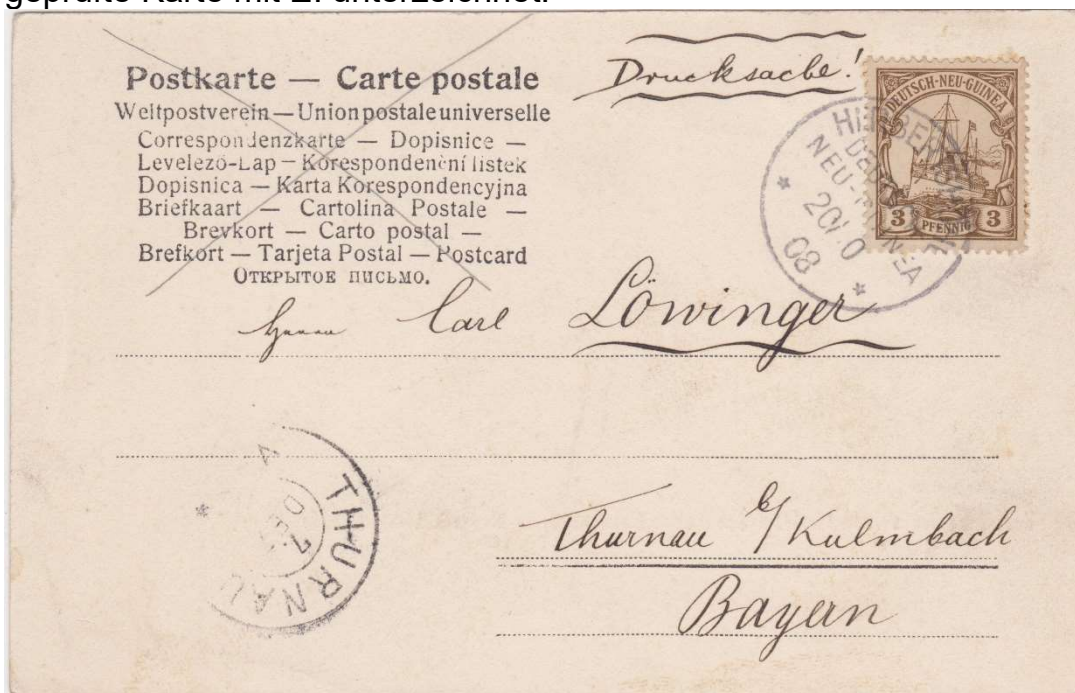 geprüfte Karte mit E. unterzeichnet.
Drucksache!
Postkarte — Carte postale
Weltpostverein — Union postale universelle
Correspondenzkarte — Dopisnice —
Levelező-Lap — Korespondenční lístek
Dopisnica — Karta Korespondencyjna
Briefkaart — Cartolina Postale —
Brevkort — Carto postal —
Brefkort — Tarjeta Postal — Postcard
Открытое письмо.
DEUTSCH-NEU-GUINEA
3 PFENNIG 3
20
08
Herrn Carl Löwinger
THURNAU
7 DEZ
Thurnau b/ Kulmbach
Bayern